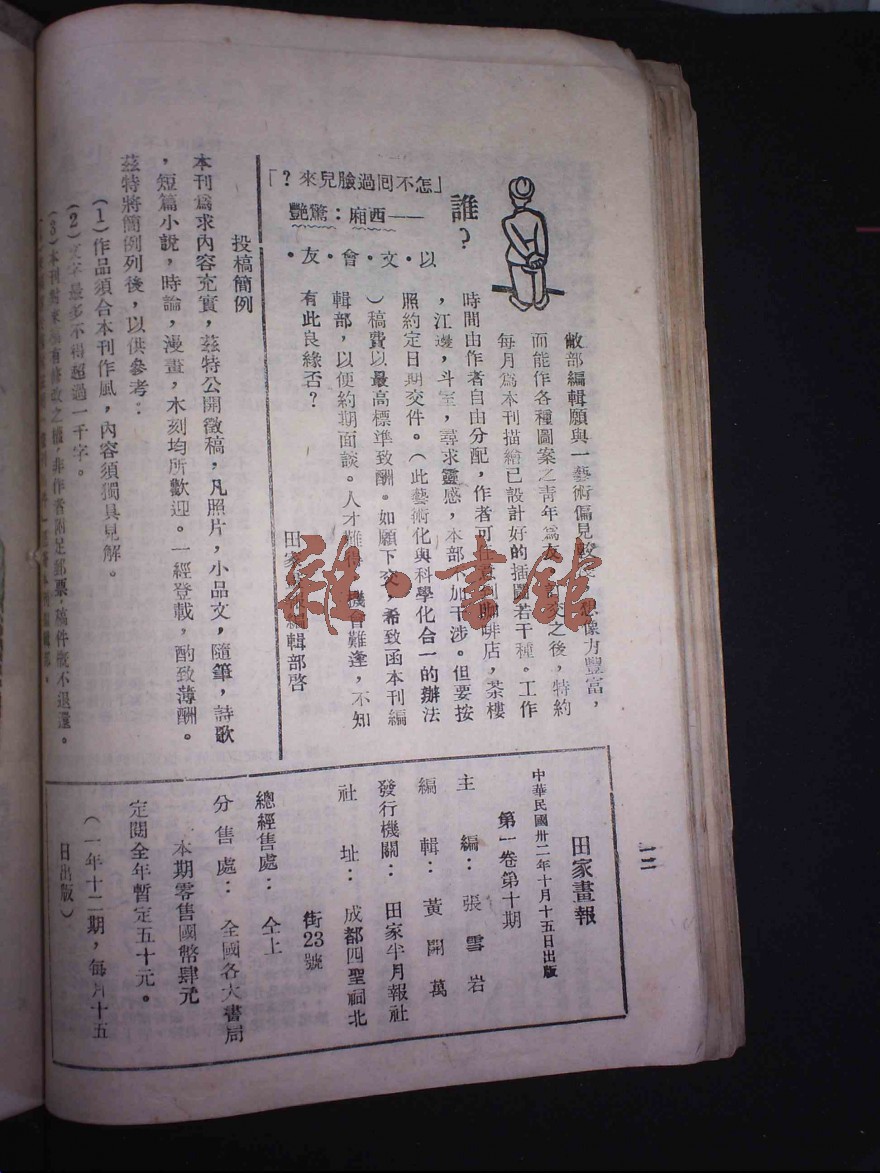 誰?
「怎不回過臉兒來?」
——西廂:驚艷
以·文·會·友·
敝部編輯願與一藝術偏見較 想像力豐富,
而能作各種圖案之青年爲友 訂交之後,特約
每月爲本刊描繪已設計好的插圖若干種。工作
時間由作者自由分配,作者可任意到咖啡店,茶樓
,江邊,斗室,尋求靈感,本部不加干涉。但要按
照約定日期交件。(此藝術化與科學化合一的辦法
)稿費以最高標準致酬。如願下交,希致函本刊編
輯部,以便約期面談。人才難得 機會難逢,不知
有此良緣否?
田家 編輯部啓
投稿簡例
本刊爲求內容充實,茲特公開徵稿,凡照片,小品文,隨筆,詩歌
,短篇小說,時論,漫畫,木刻均所歡迎。一經登載,酌致薄酬。
茲特將簡例列後,以供參考:
(1)作品須合本刊作風,內容須獨具見解。
(2)文字最多不得超過一千字。
(3)本刊對來稿有修改之權,非作者附足郵票,稿件概不退還。
一二
田家畫報
中華民國卅二年十月十五日出版
第一卷第十期
主編:張雪岩
編輯:黃開萬
發行機關:田家半月報社
社址:成都四聖祠北
街23號
總經售處:仝上
分售處:全國各大書局
本期零售國幣肆元
定閱全年暫定五十元。
(一年十二期,每月十五
日出版)
雜·書館